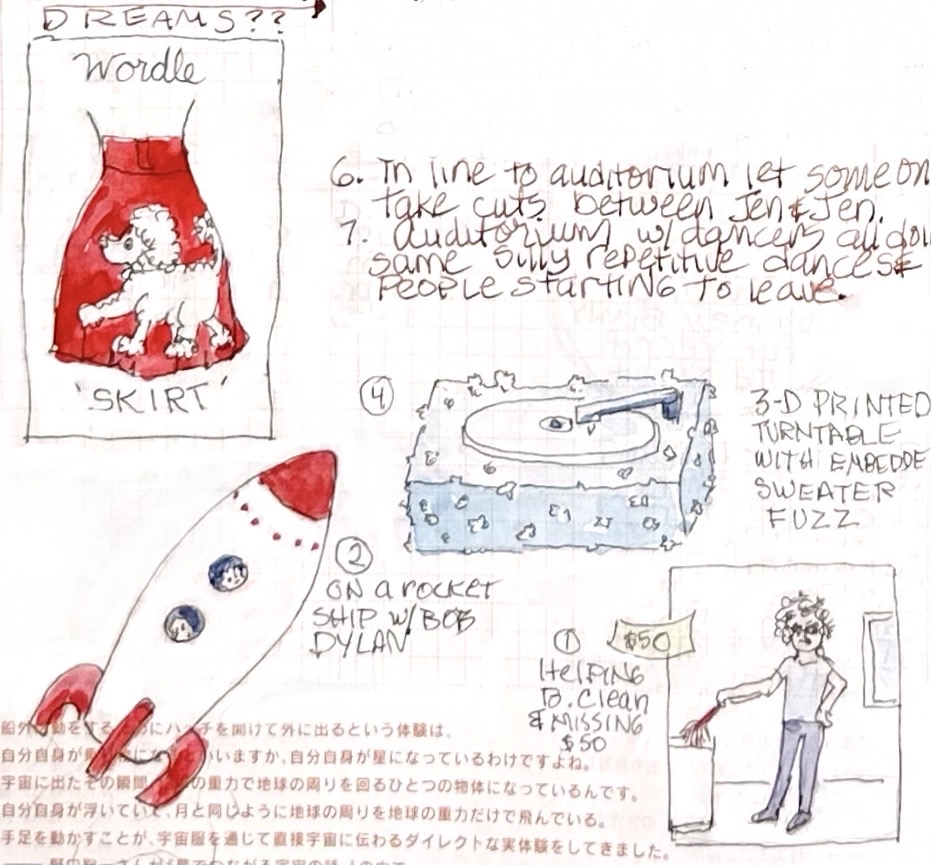 DREAMS??
Wordle
'SKIRT'
6. In line to auditorium let
take cuts between Jen & Jen.
7. auditorium w/dancers all
same silly repetitive dances &
People starting to leave.
4
3-D PRINTED
TURNTABLE
WITH
SWEATER
FUZZ
2
ON a rocket
SHIP W/ BOB
DYLAN
1
$50
Helping
B. Clean
& MISSING
$50
船外 動をする ハッチを開けて外に出るという体験は、
自分自身が いいますか、自分自身が星になっているわけですよね。
宇宙に出たその瞬間 の重力で地球の周りを回るひとつの物体になっているんです。
自分自身が浮いていて、月と同じように地球の周りを地球の重力だけで飛んでいる。
手足を動かすことが、宇宙服を通じて直接宇宙に伝わるダイレクトな実体験をしてきました。